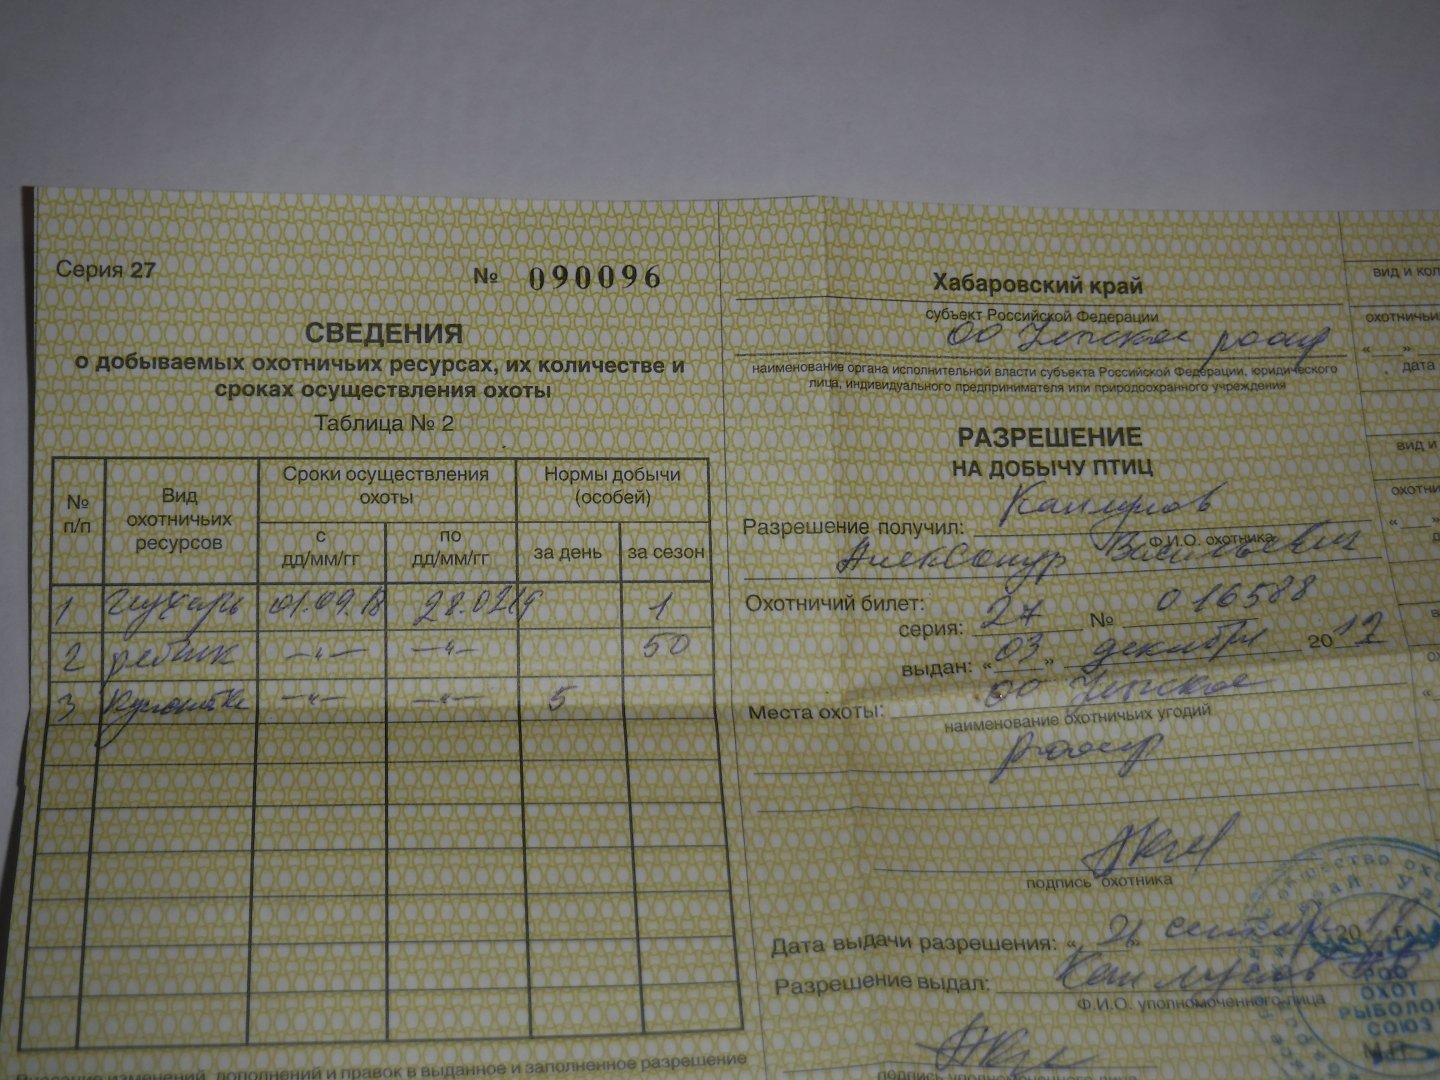 Серия 27 № 090096
СВЕДЕНИЯ
о добываемых охотничьих ресурсах, их количестве и
сроках осуществления охоты
Таблица № 2
№ п/п Вид охотничьих ресурсов Сроки осуществления охоты Нормы добычи (особей)
с дд/мм/гг по дд/мм/гг за день за сезон
1 глухарь 01.09.18 28.02.19 1
2 рябчик —"— —"— 50
3 —"— —"— 5
Внесение изменений, дополнений и правок в выданное и заполненное разрешение
Хабаровский край
субъект Российской Федерации
ОО
наименование органа исполнительной власти субъекта Российской Федерации, юридического
лица, индивидуального предпринимателя или природоохранного учреждения
РАЗРЕШЕНИЕ
НА ДОБЫЧУ ПТИЦ
Разрешение получил:
Ф.И.О. охотника
Александр Васильевич
Охотничий билет:
серия: 27 № 016588
выдан: «03» декабря 2012
Места охоты: ОО
наименование охотничьих угодий
подпись охотника
Дата выдачи разрешения: « » сентября 20
Разрешение выдал:
Ф.И.О. уполномоченного лица
подпись уполномоченного лица
М.П.
ОХОТ
РЫБОЛО
СОЮЗ
вид и кол
охотничьи
« »
дата
вид и
охотни
« »